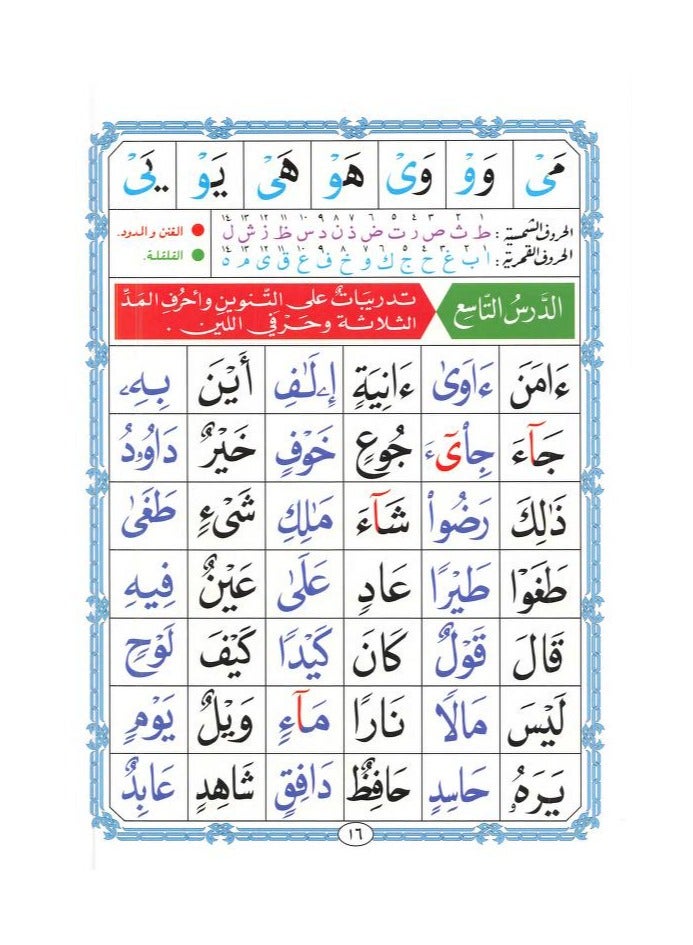 مَىْ وَوْ وَىْ هَوْ هَىْ يَوْ يَىْ
١ ٢ ٣ ٤ ٥ ٦ ٧ ٨ ٩ ١٠ ١١ ١٢ ١٣ ١٤
الحروف الشمسية : ط ث ص ر ت ض ذ ن د س ظ ز ش ل ● الغنن والمدود.
الحروف القمرية : أ ب غ ح ج ك و خ ف ع ق ى م ه ● القلقلة.
١ ٢ ٣ ٤ ٥ ٦ ٧ ٨ ٩ ١٠ ١١ ١٢ ١٣ ١٤
الدَّرسُ التَّاسِع
تدريبَاتٌ على التَّنوينِ وأحرُفِ المَدِّ
الثلاثة وحَرْفي اللين .
ءَامَنَ ءَاوَىٰ ءَانِيَةٍ إِۦلَٰفِ أَيْنَ بِهِۦ
جَآءَ جِاْىٓءَ جُوعٍ خَوْفٍ خَيْرٌ دَاوُۥدُ
ذَٰلِكَ رَضُواْ شَآءَ مَٰلِكِ شَىْءٍ طَغَىٰ
طَغَوْا طَيْرًا عَادٍ عَلَىٰ عَيْنٌ فِيهِ
قَالَ قَوْلٌ كَانَ كَيْدًا كَيْفَ لَوْحٍ
لَيْسَ مَالًا نَارًا مَآءٍ وَيْلٌ يَوْمٍ
يَرَهُۥ حَاسِدٍ حَافِظٌ دَافِقٍ شَاهِدٍ عَابِدٌ
١٦